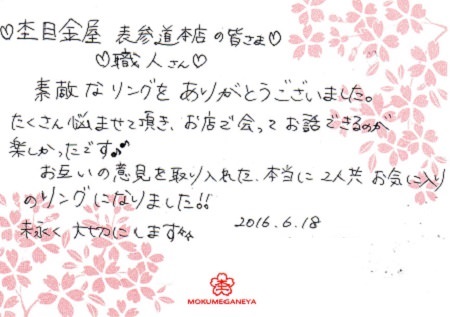 ♡杢目金屋 表参道本店の皆さま♡
♡職人さん♡
素敵なリングをありがとうございました。
たくさん悩ませて頂き、お店で会ってお話できるのが
楽しかったです♪♪
お互いの意見を取り入れた、本当に2人共お気に入り
のリングになりました!!
末永く大切にします
2016.6.18
MOKUMEGANEYA